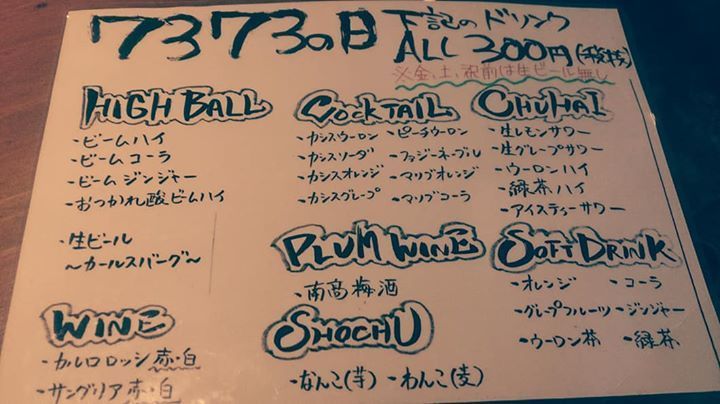 7373の日 下記のドリンク
ALL 300円(税抜)
※金、土、祝前は生ビール無し
HIGH BALL
・ビームハイ
・ビームコーラ
・ビームジンジャー
・おつかれ酸ビームハイ
・生ビール
～カールスバーグ～
WINE
・カルロロッシ 赤・白
・サングリア 赤・白
COCKTAIL
・カシスウーロン ・ピーチウーロン
・カシスソーダ ・ファジーネーブル
・カシスオレンジ ・マリブオレンジ
・カシスグレープ ・マリブコーラ
PLUM WINE
・南高梅酒
SHOCHU
・なんこ(芋) ・わんこ(麦)
CHUHAI
・生レモンサワー
・生グレープサワー
・ウーロンハイ
・緑茶ハイ
・アイスティーサワー
SOFT DRINK
・オレンジ ・コーラ
・グレープフルーツ ・ジンジャー
・ウーロン茶 ・緑茶